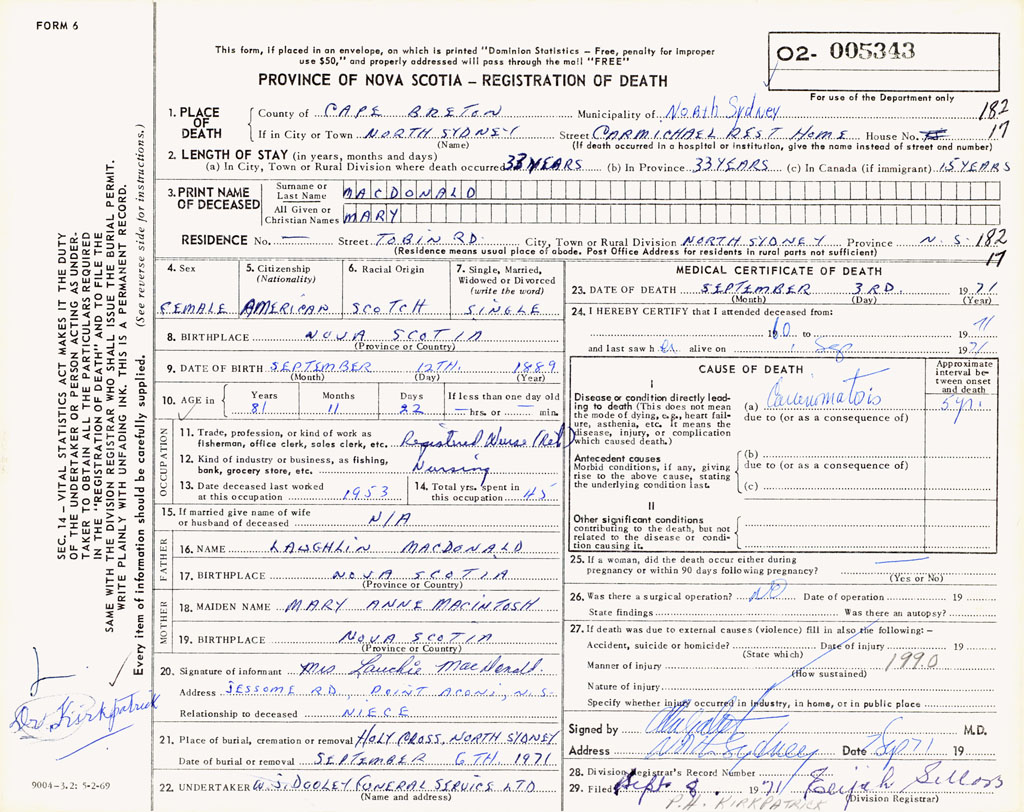 FORM 6
This form, if placed in an envelope, on which is printed "Dominion Statistics – Free, penalty for improper
use $50," and properly addressed will pass through the mail "FREE"
PROVINCE OF NOVA SCOTIA – REGISTRATION OF DEATH
O2- 005343
For use of the Department only
1. PLACE OF DEATH County of CAPE BRETON Municipality of North Sydney 182
If in City or Town NORTH SYDNEY Street CARMICHAEL REST HOME House No. 17
(Name) (If death occurred in a hospital or institution, give the name instead of street and number)
2. LENGTH OF STAY (in years, months and days)
(a) In City, Town or Rural Division where death occurred 33 YEARS (b) In Province 33 YEARS (c) In Canada (if immigrant) 15 YEARS
3. PRINT NAME OF DECEASED Surname or Last Name MACDONALD
All Given or Christian Names MARY
RESIDENCE No. — Street TOBIN RD. City, Town or Rural Division NORTH SYDNEY Province N.S. 182
(Residence means usual place of abode. Post Office Address for residents in rural parts not sufficient) 17
4. Sex 5. Citizenship (Nationality) 6. Racial Origin 7. Single, Married, Widowed or Divorced (write the word)
FEMALE AMERICAN SCOTCH SINGLE
8. BIRTHPLACE NOVA SCOTIA
(Province or Country)
9. DATE OF BIRTH SEPTEMBER 12TH. 1889
(Month) (Day) (Year)
10. AGE in Years Months Days If less than one day old
81 11 22 — hrs. or — min.
OCCUPATION
11. Trade, profession, or kind of work as
fisherman, office clerk, sales clerk, etc. Registered Nurse (Ret.)
12. Kind of industry or business, as fishing,
bank, grocery store, etc. Nursing
13. Date deceased last worked at this occupation 1953 14. Total yrs. spent in this occupation 45
15. If married give name of wife
or husband of deceased N/A
FATHER
16. NAME LAUGHLIN MACDONALD
17. BIRTHPLACE NOVA SCOTIA
(Province or Country)
MOTHER
18. MAIDEN NAME MARY ANNE MACINTOSH
19. BIRTHPLACE NOVA SCOTIA
(Province or Country)
20. Signature of informant Mrs Lauchie MacDonald
Address JESSOME RD, POINT ACONI, N.S.
Relationship to deceased NIECE
21. Place of burial, cremation or removal HOLY CROSS, NORTH SYDNEY
Date of burial or removal SEPTEMBER 6TH. 1971
22. UNDERTAKER W.S. DOOLEY FUNERAL SERVICE LTD
(Name and address)
MEDICAL CERTIFICATE OF DEATH
23. DATE OF DEATH SEPTEMBER 3RD. 1971
(Month) (Day) (Year)
24. I HEREBY CERTIFY that I attended deceased from:
1960 to 1971
and last saw her alive on 1 Sep 1971
CAUSE OF DEATH
Approximate interval between onset and death
I
Disease or condition directly leading to death (This does not mean the mode of dying, e.g., heart failure, asthenia, etc. It means the disease, injury, or complication which caused death.)
(a) Carcinomatosis 5 yr.
due to (or as a consequence of)
Antecedent causes
Morbid conditions, if any, giving rise to the above cause, stating the underlying condition last.
(b)
due to (or as a consequence of)
(c)
II
Other significant conditions
contributing to the death, but not related to the disease or condition causing it.
25. If a woman, did the death occur either during
pregnancy or within 90 days following pregnancy? —
(Yes or No)
26. Was there a surgical operation? NO Date of operation 19
State findings Was there an autopsy?
27. If death was due to external causes (violence) fill in also the following: –
Accident, suicide or homicide? Date of injury 19
(State which) 1990
Manner of injury (How sustained)
Nature of injury
Specify whether injury occurred in industry, in home, or in public place
Signed by M.D.
Address North Sydney Date Sep 71 19
28. Division Registrar's Record Number
29. Filed Sept 8 1971
(Division Registrar)
P.A. KIRKPATRICK
SEC. 14 – VITAL STATISTICS ACT MAKES IT THE DUTY
OF THE UNDERTAKER OR PERSON ACTING AS UNDER-
TAKER TO OBTAIN ALL THE PARTICULARS REQUIRED
IN THE "REGISTRATION OF DEATH" AND TO FILE THE
SAME WITH THE DIVISION REGISTRAR WHO SHALL ISSUE THE BURIAL PERMIT.
WRITE PLAINLY WITH UNFADING INK. THIS IS A PERMANENT RECORD.
Every item of information should be carefully supplied. (See reverse side for instructions.)
Dr Kirkpatrick
9004-3.2: 5-2-69